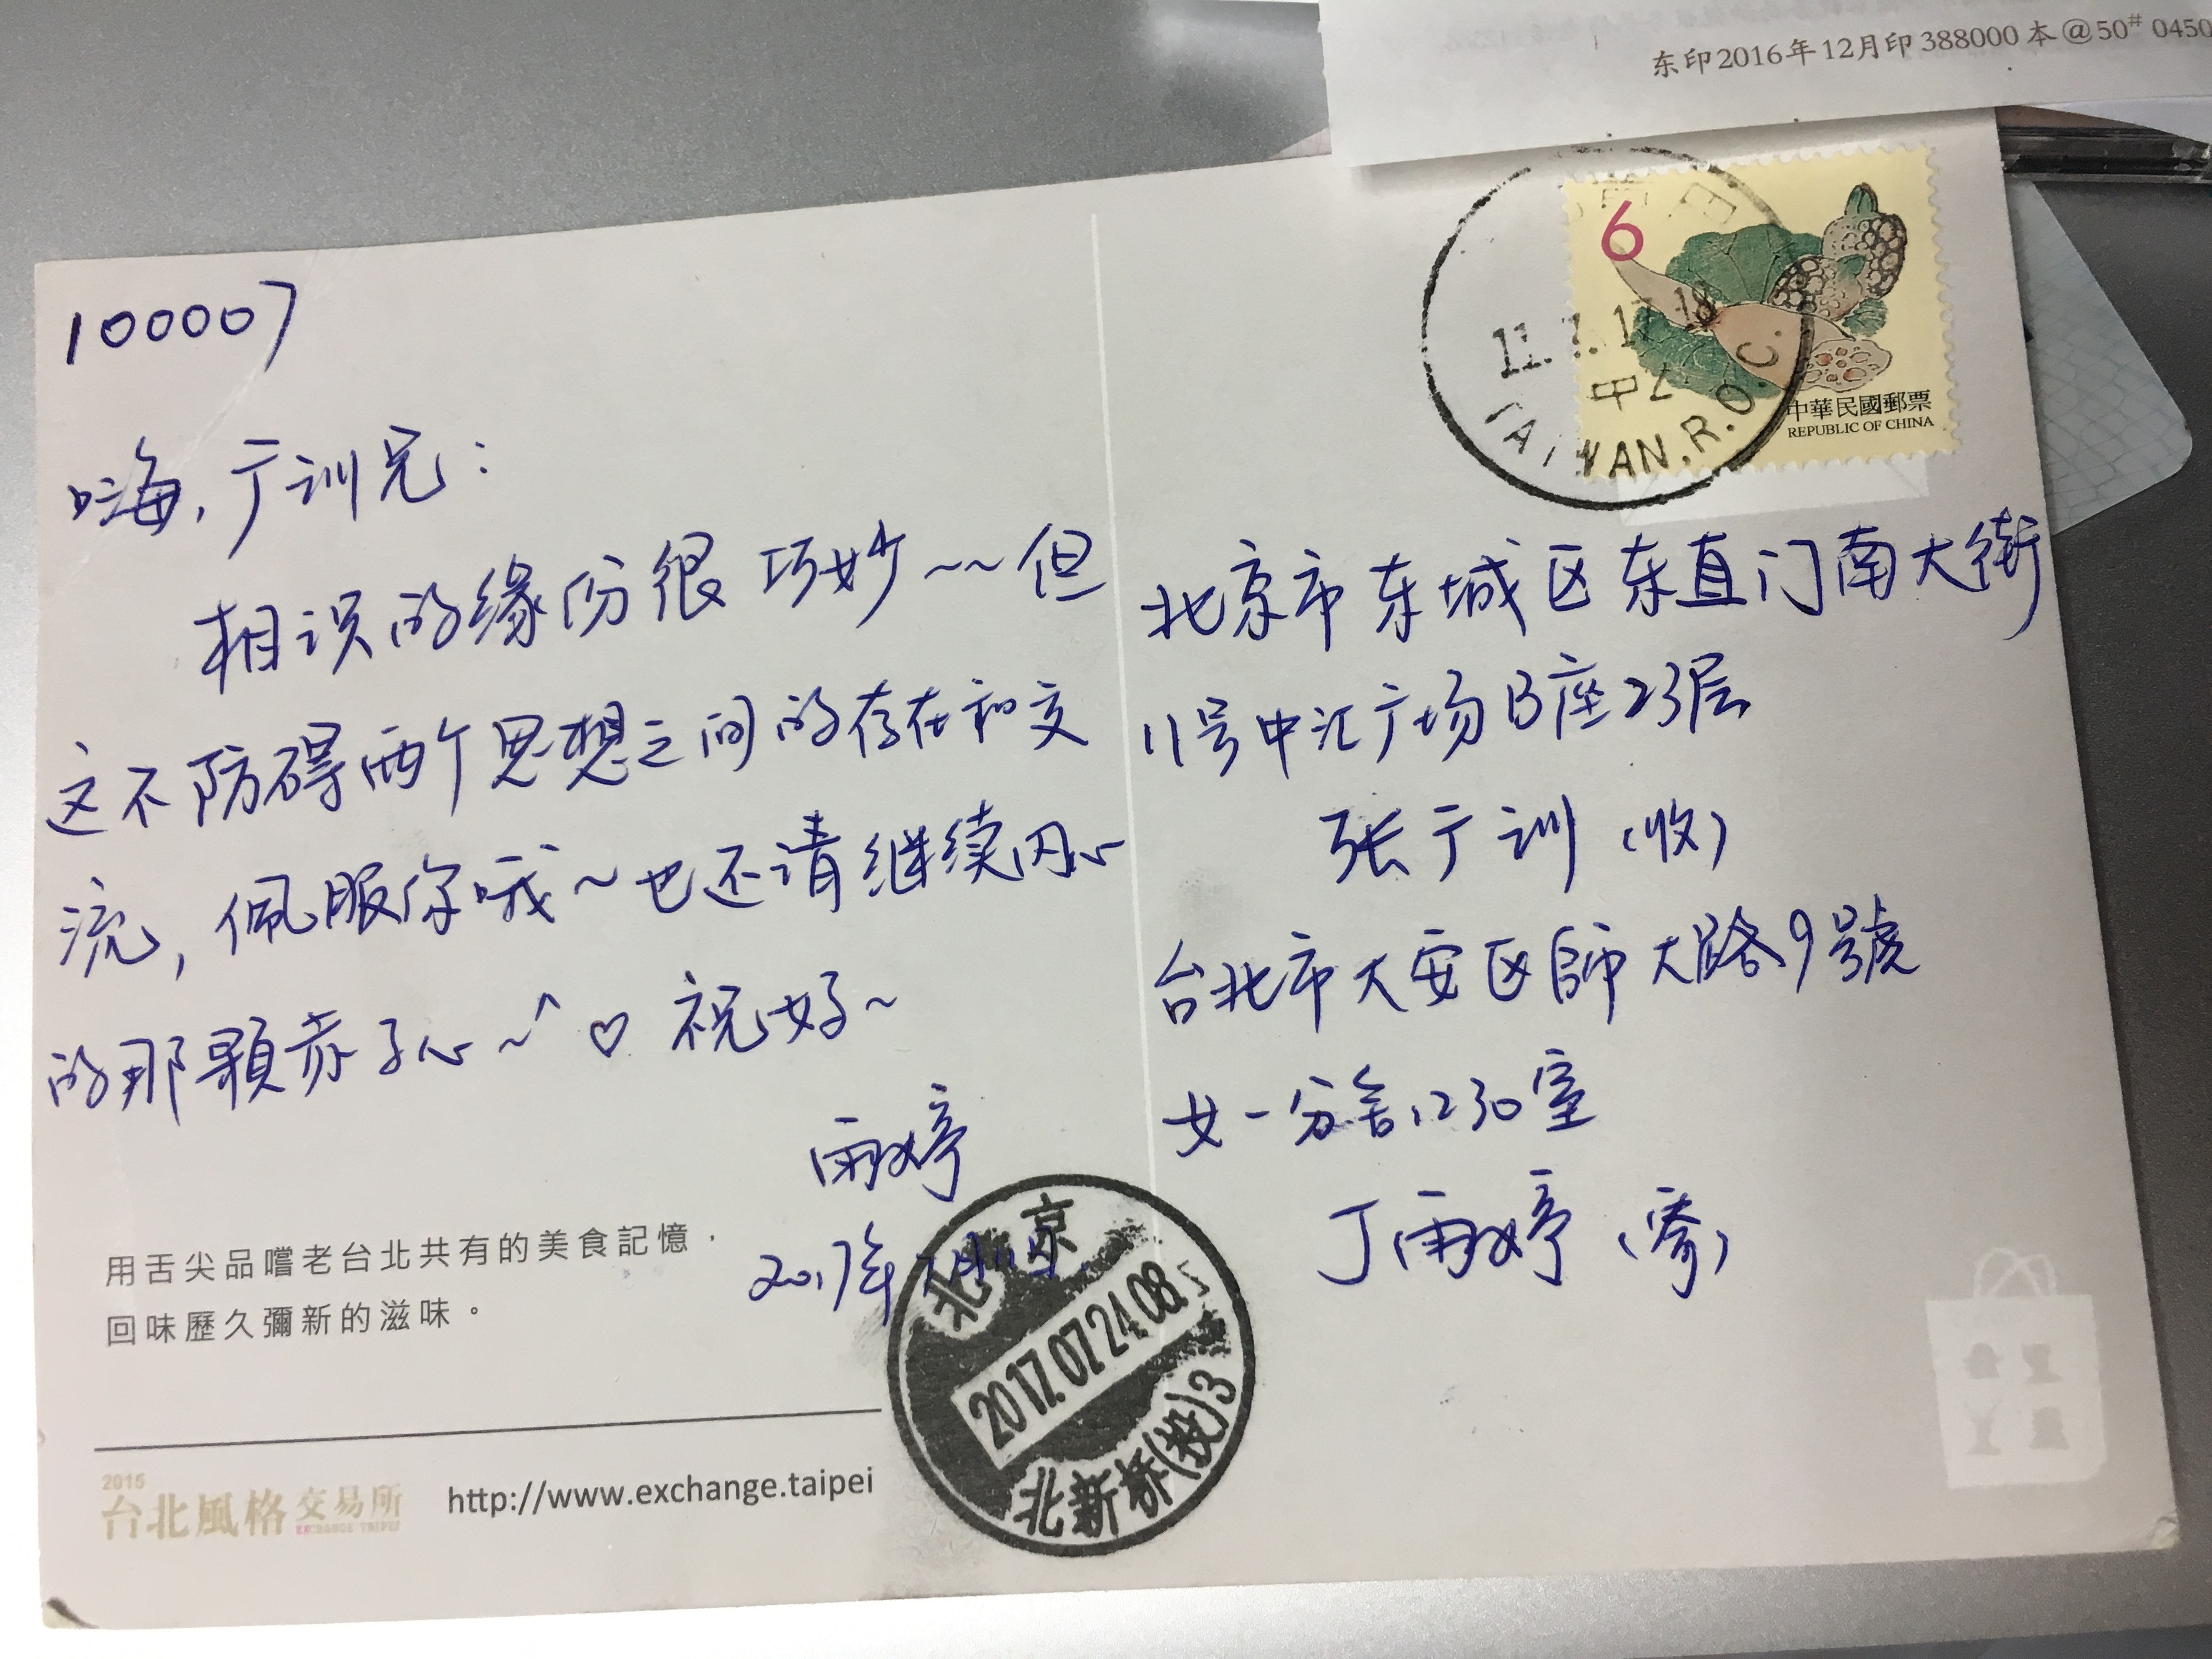 东印2016年12月印388000本@50# 0450
6
中華民國郵票
REPUBLIC OF CHINA
中
TAIWAN.R.O.C.
100007
嗨，亍训兄：
相识的缘份很巧妙~~但
这不防碍两个思想之间的存在和交
流，佩服你哦~也还请继续内心
的那顆赤子心~^♡祝好~
雨婷
2017年7月11日
北京市东城区东直门南大街
11号中汇广场B座23层
张亍训（收）
台北市大安区師大路9號
女一分舍1230室
丁雨婷（寄）
用舌尖品嚐老台北共有的美食記憶，
回味歷久彌新的滋味。
2015
台北風格交易所
EXCHANGE TAIPEI
http://www.exchange.taipei
北京
2017.07.24.08
北新桥(投)3